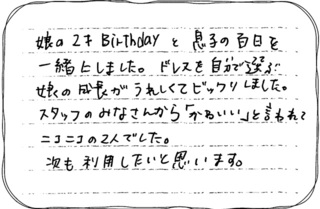 娘の2才Birthdayと息子の百日を
一緒にしました。ドレスを自分で選ぶ
娘の成長がうれしくてビックリしました。
スタッフのみなさんから「かわいい」と言われて
ニコニコの2人でした。
次も利用したいと思います。